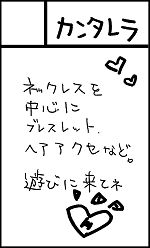 カンタレラ
ネックレスを
中心に
ブレスレット.
ヘアアクセなど。
遊びに来てネ